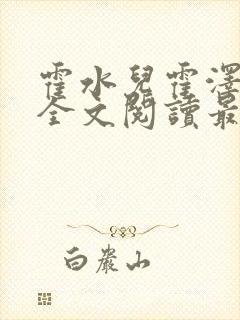 霍水兒霍澤
全文閱讀最
白巖山